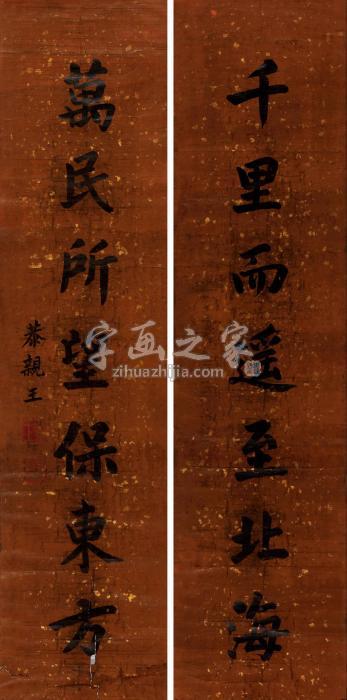 千里而遥至北海
萬民所望保東方
恭親王
字画之家
zihuazhijia.com